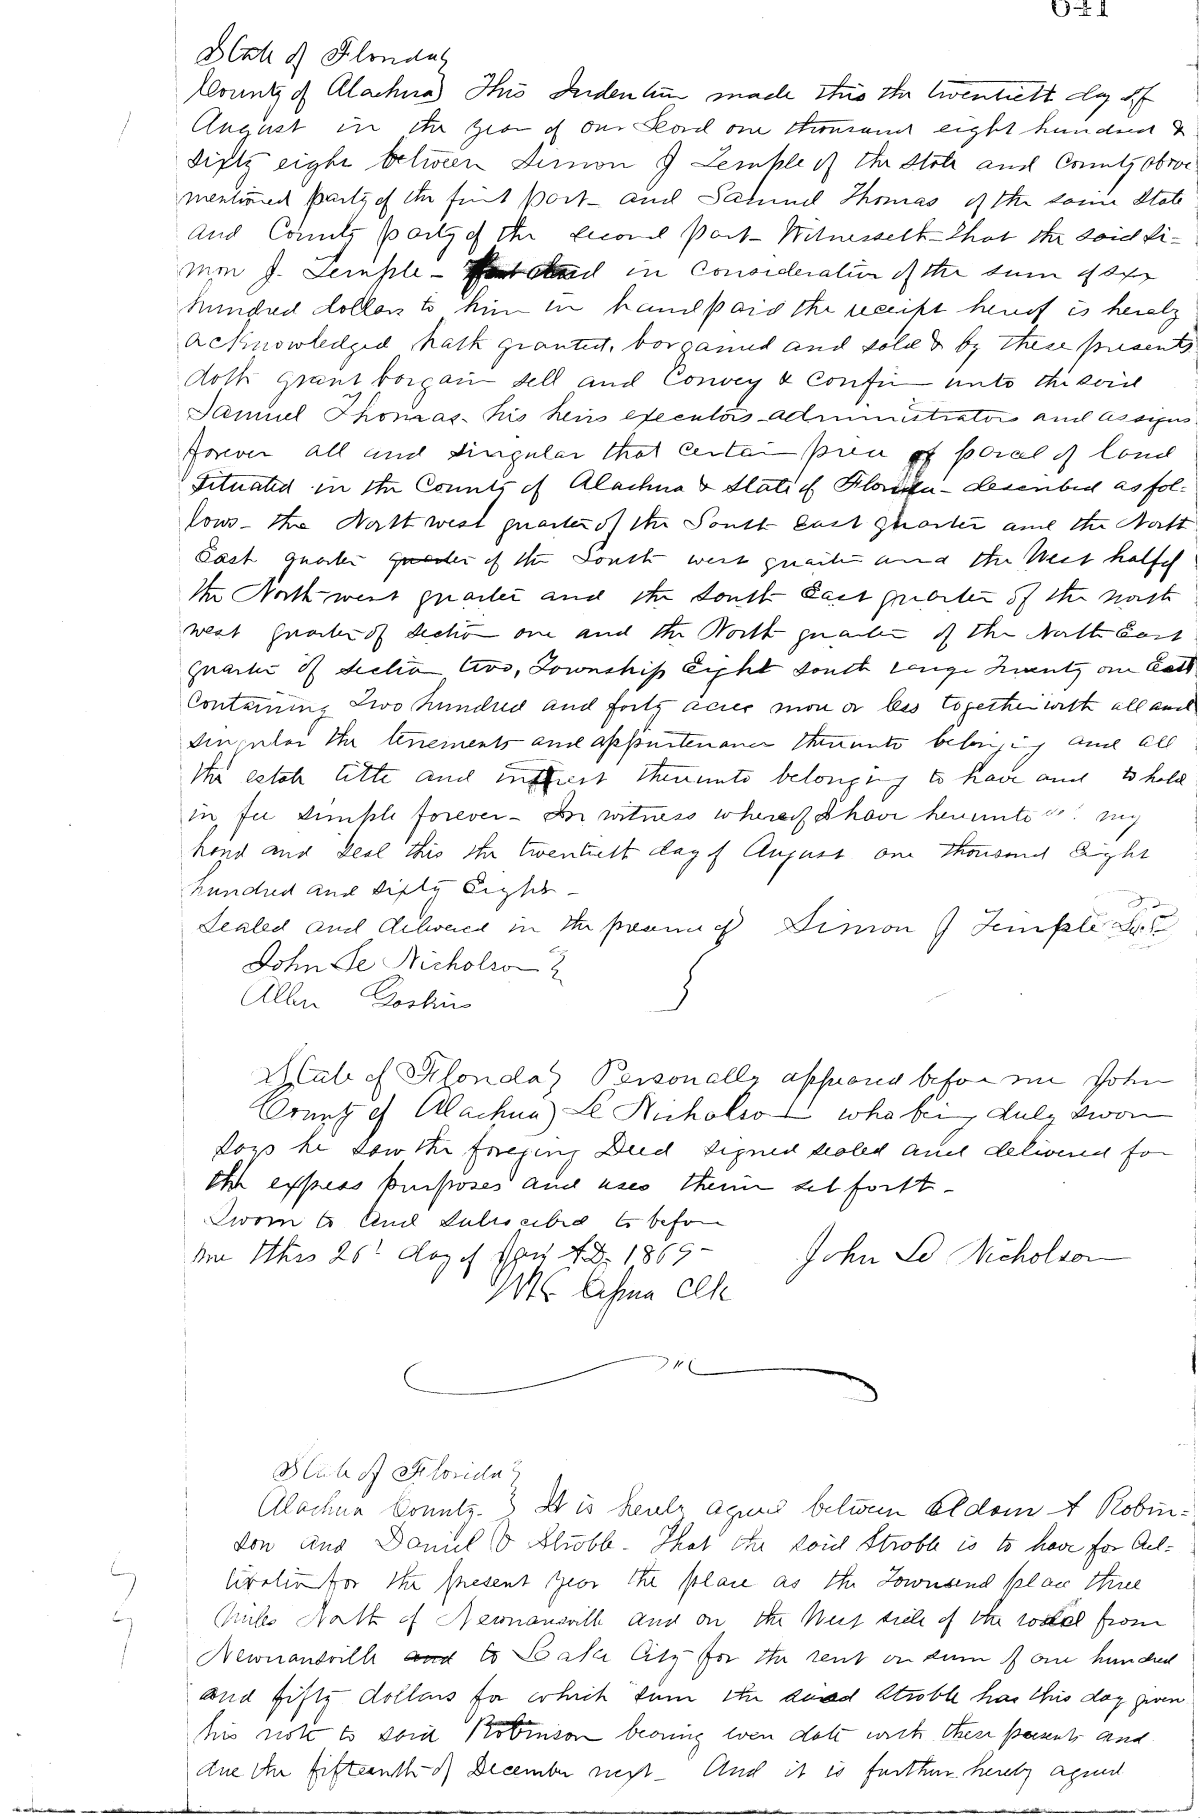 641
State of Florida
County of Alachua This Indenture made this the twentieth day of
August in the year of our Lord one thousand eight hundred &
sixty eight between Simon J Temple of the State and County above
mentioned party of the first part - and Samuel Thomas of the same State
and County party of the second part - Witnesseth - that the said Si-
mon J. Temple - in consideration of the sum of six
hundred dollars to him in hand paid the receipt hereof is hereby
acknowledged hath granted, bargained and sold & by these presents
doth grant bargain sell and Convey & confirm unto the said
Samuel Thomas - his heirs executors administrators and assigns
forever all and singular that certain piece of parcel of land
situated in the County of Alachua & State of Florida - described as fol-
lows - the North west quarter of the South East quarter and the North
East quarter quarter of the South west quarter and the West half of
the North west quarter and the South East quarter of the north
west quarter of section one and the North quarter of the North East
quarter of section two, Township Eight South range Twenty one East
Containing Two hundred and forty acres more or less together with all and
singular the tenements and appurtenances thereunto belonging and all
the estate title and interest thereunto belonging to have and to hold
in fee simple forever - In witness whereof I have hereunto set my
hand and seal this the twentieth day of August one thousand Eight
hundred and sixty Eight -
Sealed and delivered in the presence of Simon J Temple
John Le Nicholson
Allen Goskins
State of Florida Personally appeared before me John
County of Alachua Le Nicholson who being duly sworn
says he saw the foregoing Deed signed sealed and delivered for
the express purposes and uses therein set forth -
Sworn to and subscribed to before
me this 26t day of Jany A.D. 1869 - John Le Nicholson
Clk
State of Florida
Alachua County. It is hereby agreed between Aldom A Robin-
son and Daniel O Stroble - That the said Stroble is to have for Cul-
tivation for the present year the place as the Townsend place three
Miles North of Newnansville and on the West side of the road from
Newnansville and to Lake City for the rent or sum of one hundred
and fifty dollars for which sum the said Stroble has this day given
his note to said Robinson bearing even date with these presents and
due the fifteenth of December next - And it is further hereby agreed